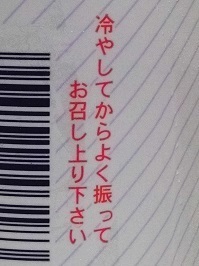 冷やしてからよく振って
お召し上り下さい